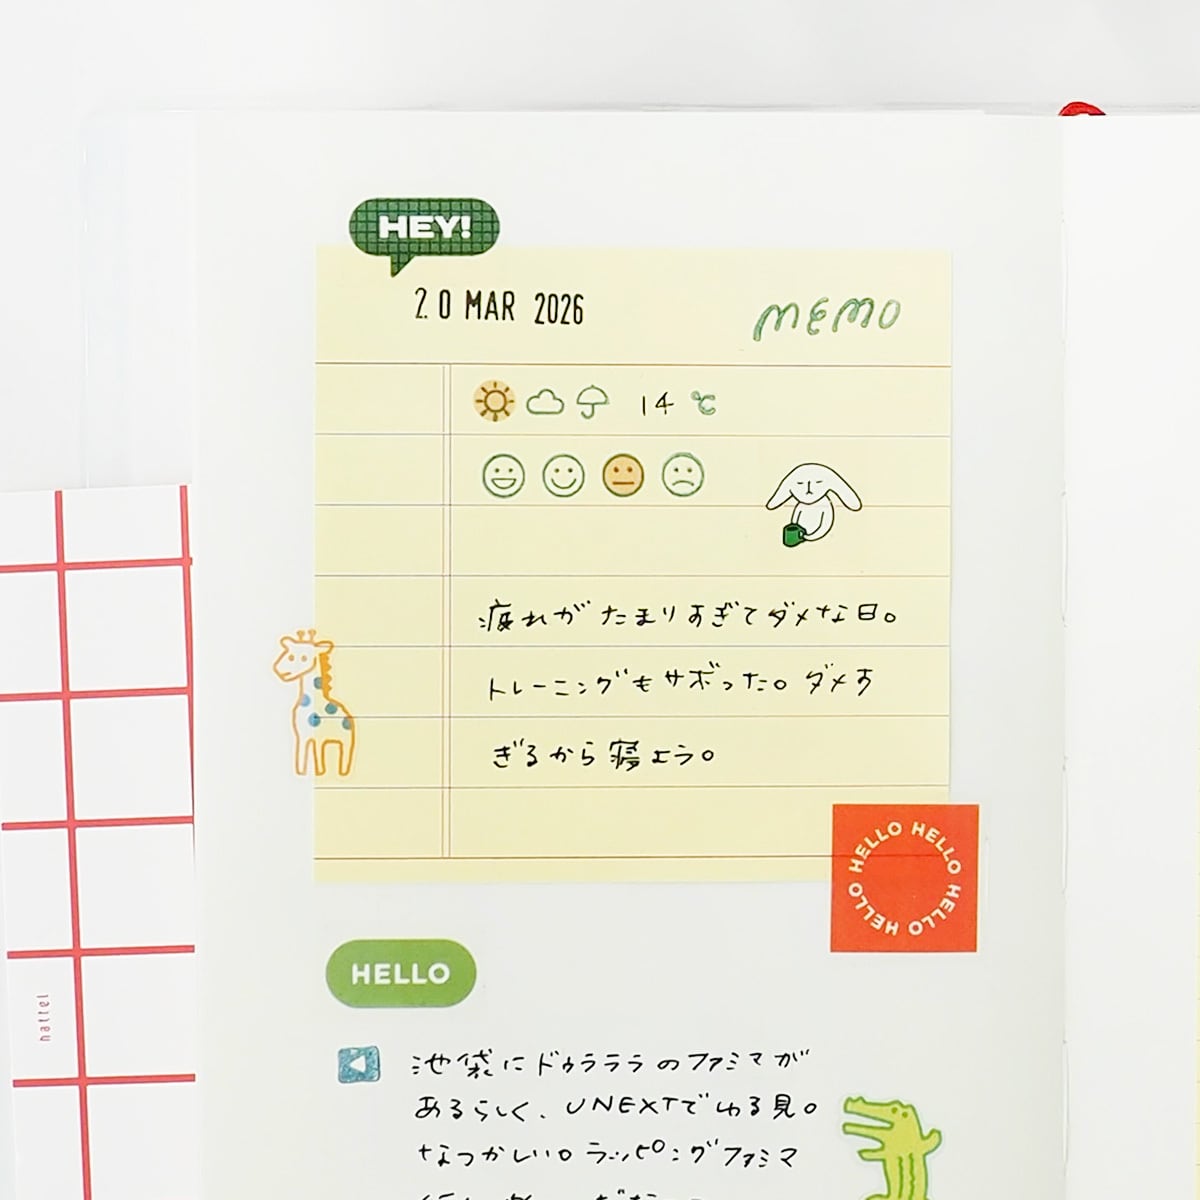 HEY!
20 MAR 2026
MEMO
14 ℃
疲れがたまりすぎてダメな日。
トレーニングもサボった。ダメす
ぎるから寝よう。
HELLO HELLO HELLO HELLO HELLO
HELLO
hattel
池袋にドゥラララのファミマが
あるらしく、UNEXTでゆる見。
なつかしい。ラッピングファミマ